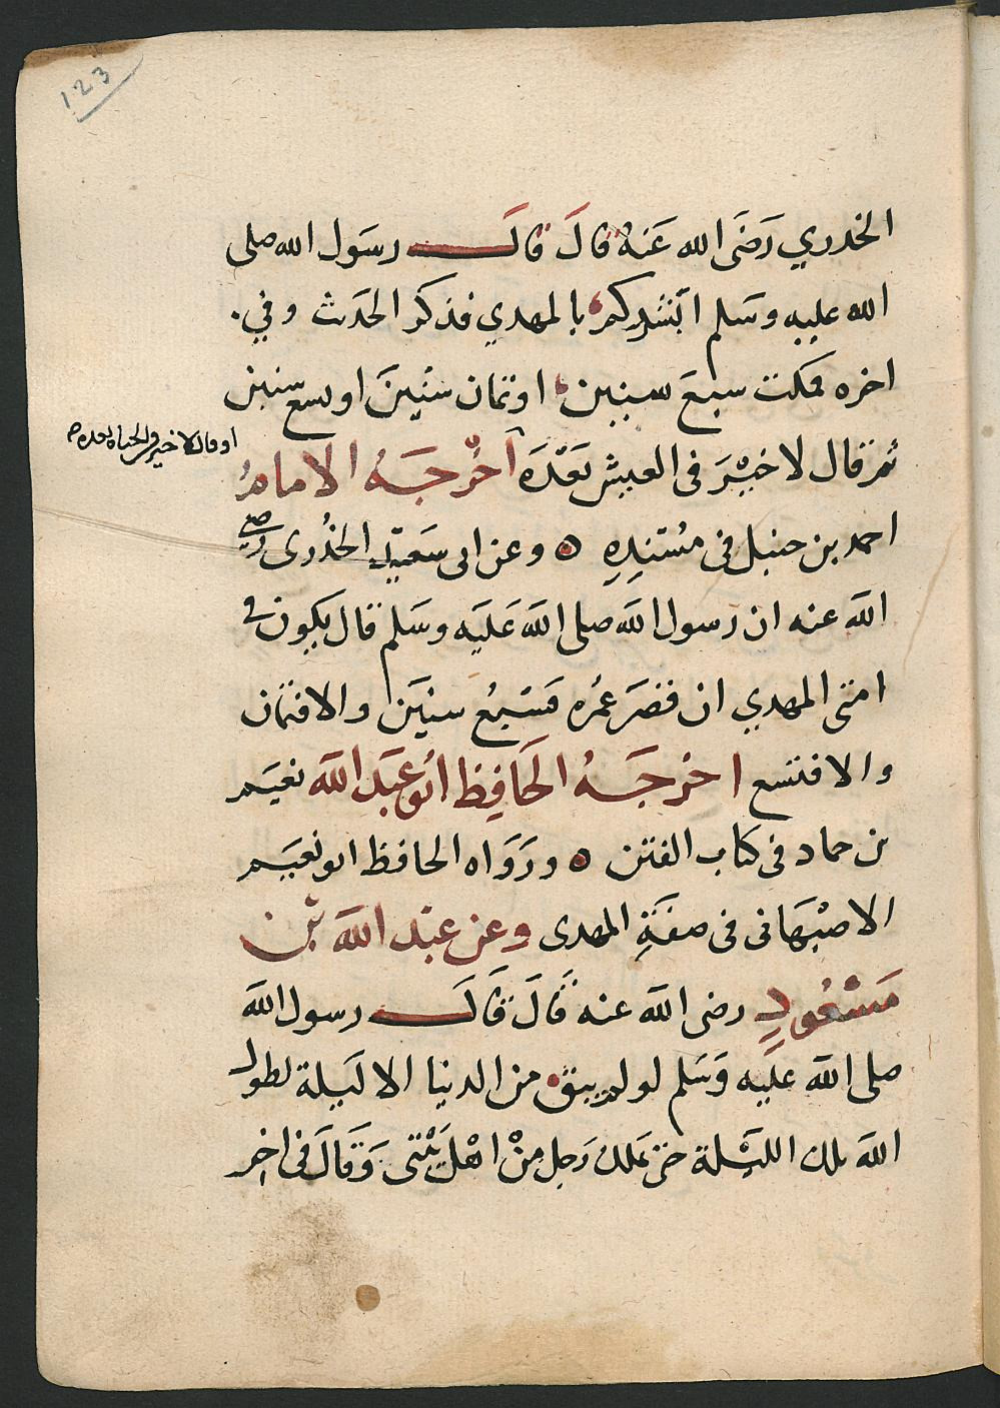 123
الخدري رَضَى الله عَنهُ قالَ قالَ رسَول الله صلى
الله عليه وسَلم ابَشركم بالمهدي فذكر الحدَث وفي
اخره فمكث سبعَ سنين اوثمان سنَينَ او تسع سنين
او قال لا خير فى الحياة بعده
ثم قال لا خيْرَ فى العيش بَعْدَهُ أخْرجَهُ الامامُ
احمد بن حنبل فى مسْنِدِهِ ه وعن ابى سَعيْدٍ الخدُرى رضى
الله عنه ان رسول الله صلى الله عَليَه وسَلم قال يكون فى
امتى المهدي ان قصَرَ عُمُره فسَبْعُ سنيَن والا فثمان
والا فتسَع اخرجَهُ الحَافِظ ابُو عبَد الله نعيَم
بن حماد فى كتاب الفتن ه ورَوَاه الحافظ ابو نعيَم
الاصبْهَانى فى صفَةِ المهدى وعن عبْد الله بْن
مَسْعُودٍ رضى الله عنه قَالَ قَالَ رسول الله
صلى الله عليَه وَسَلم لو لم يبق من الدنيا الا ليَلة لطول
الله تلك الليْلَة حتى يملك رَجل مِنْ اهْل بَيْتى وَقَالَ فى اخِر